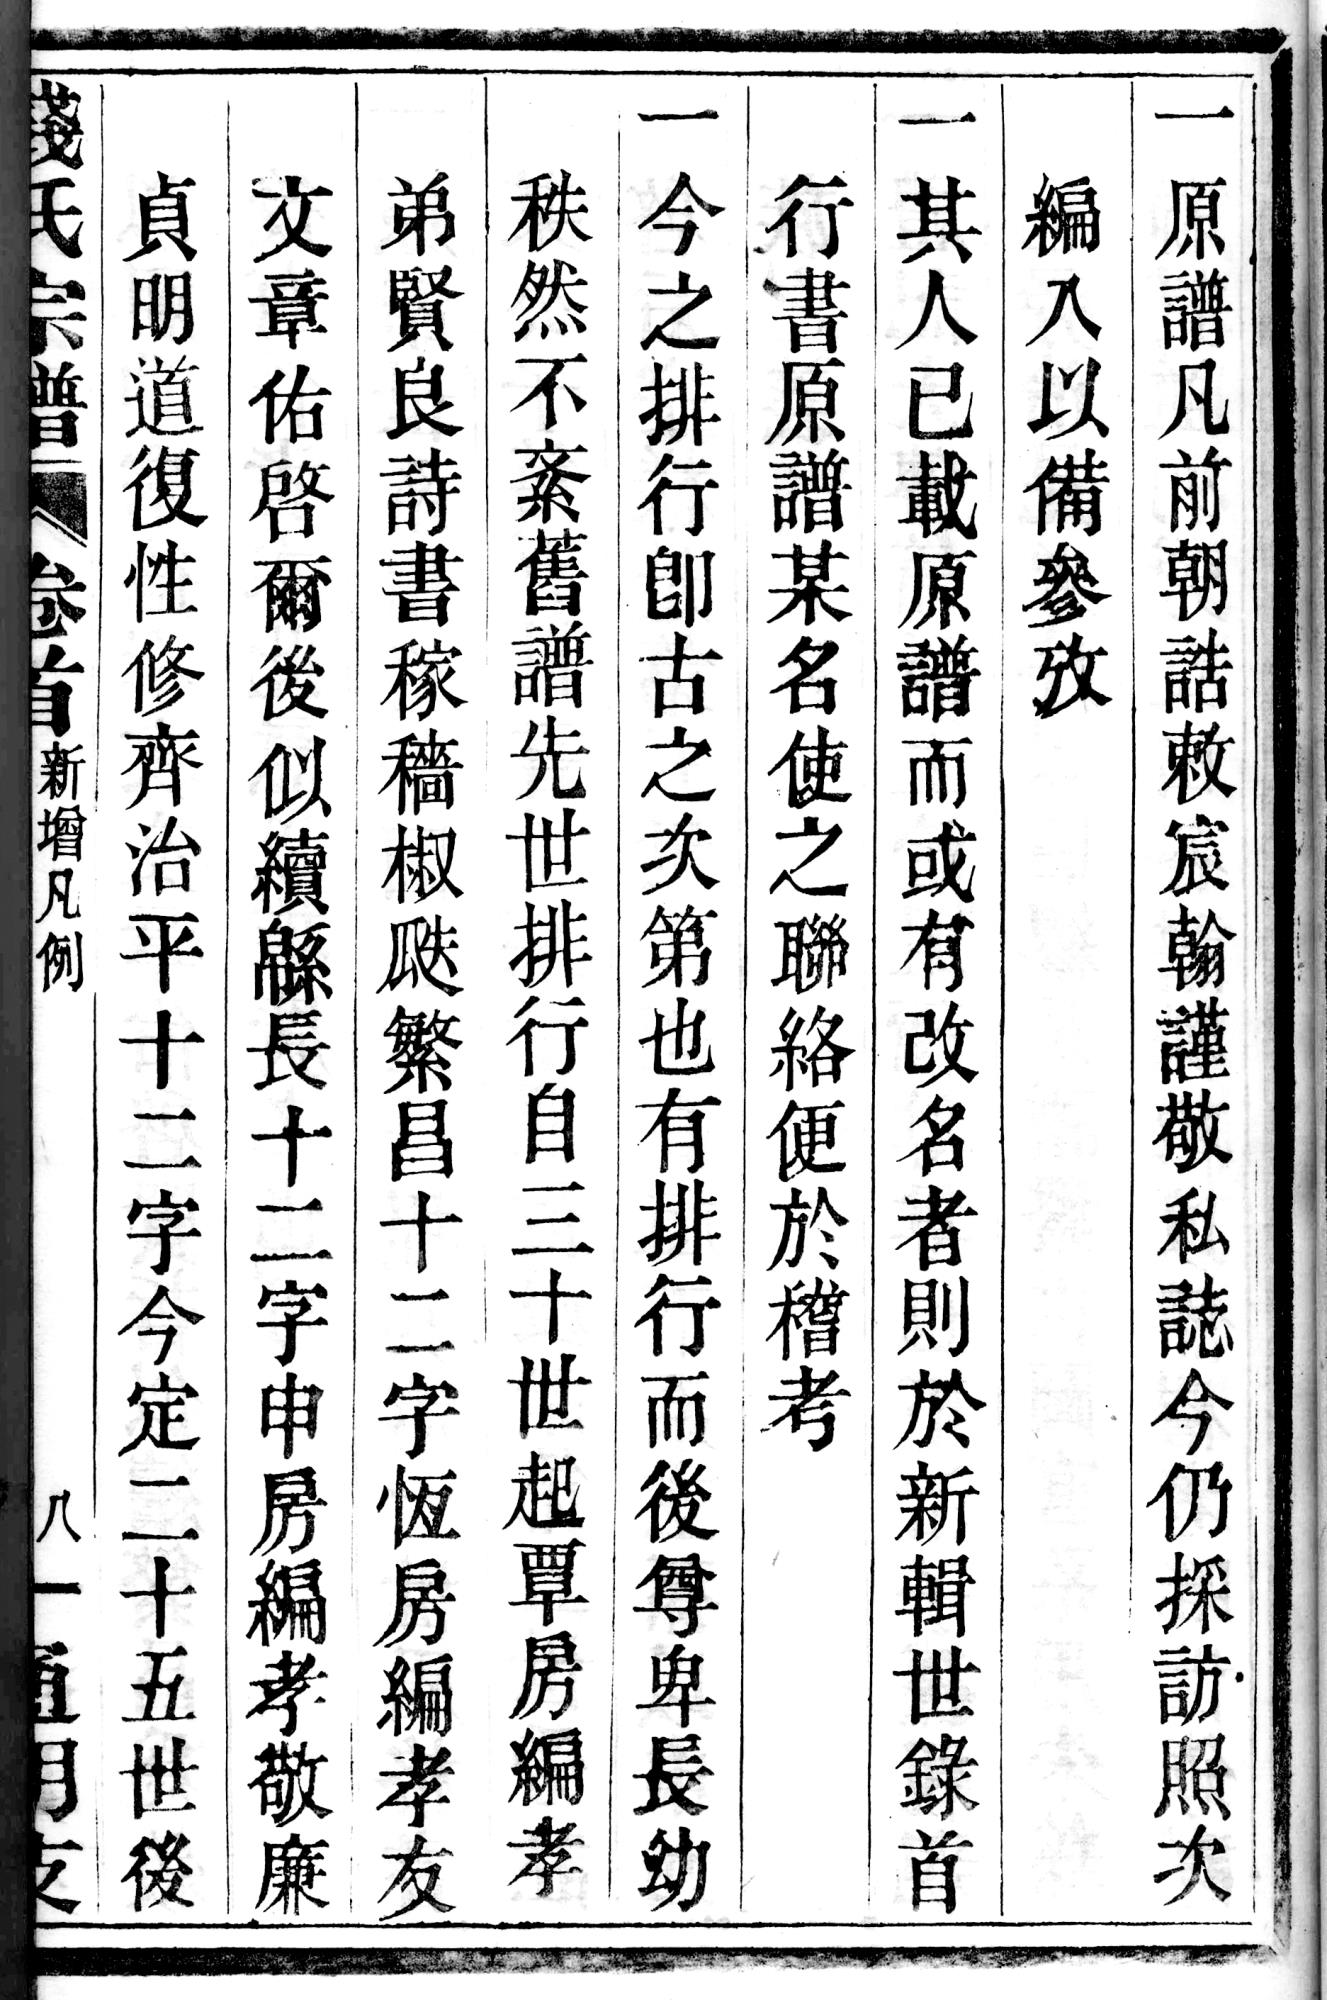 一原譜凡前朝誥敕宸翰謹敬私誌今仍採訪照次
編入以備參攷
一其人已載原譜而或有改名者則於新輯世錄首
行書原譜某名使之聯絡便於稽考
一今之排行卽古之次第也有排行而後尊卑長幼
秩然不紊舊譜先世排行自三十世起覃房編孝
弟賢良詩書稼穡椒瓞繁昌十二字恆房編孝友
文章佑啓爾後似續緜長十二字申房編孝敬廉
貞明道復性修齊治平十二字今定二十五世後
錢氏宗譜 卷首 新增凡例 八 一通明支